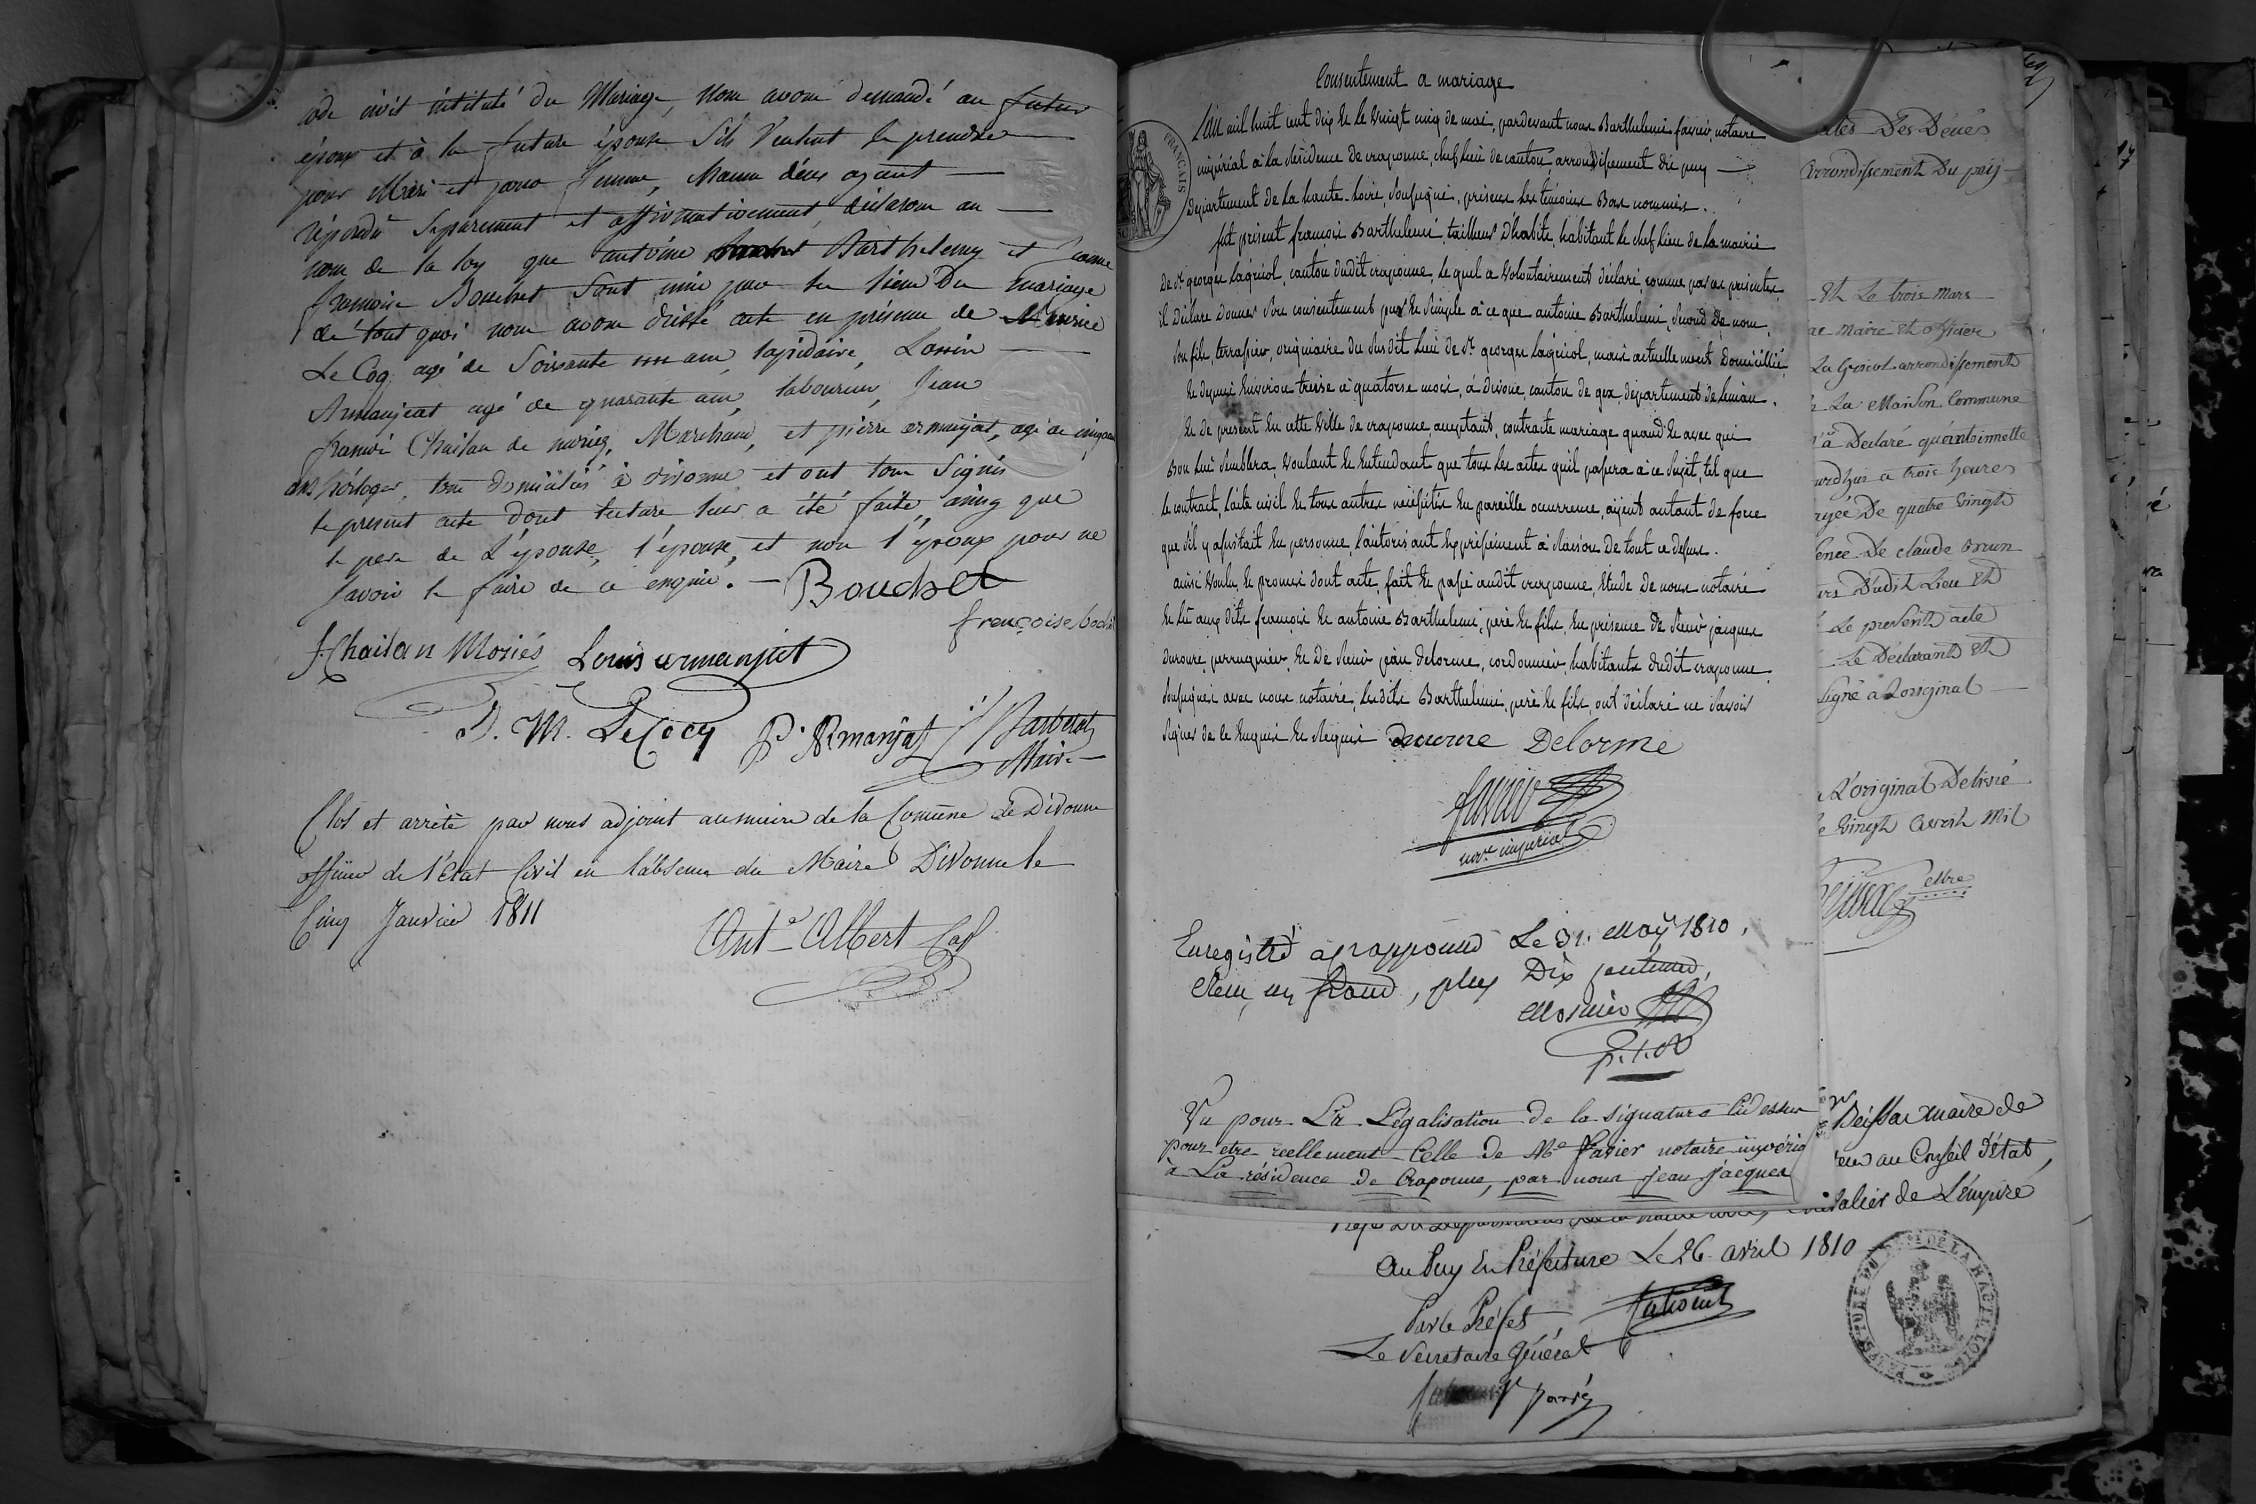 code civil intitulé du Mariage, nous avons demandé au futur
époux et à la future épouse s'ils veulent se prendre
pour Mari et pour femme, chacun d'eux ayant
répondu séparément et affirmativement, déclarons au
nom de la loy que antoine Barthelemy et Jeanne
françoise Bouchet sont unis par les liens du mariage
de tout quoi nous avons dressé acte en présence de Maurice
Le Coq agé de Soixante un ans, lapidaire, Louis
Armanjeat agé de quarante ans, laboureur, Jean
françois Chailan de moriez, Marchand, et pierre armanjat, agé de cinquante
ans horloger, tous domiciliés à divonne et ont tous signés
le présent acte dont lecture leur a été faite, ainsy que
le pere de L'épouse, l'épouse, et non l'époux pour ne
savoir le faire de ce enquis. — Bouchet
françoise
J. Chailan Moriés Louis armanjat
D. M. LeCocq P. Armanjat
Maire
Clos et arrêté par nous adjoint au maire de la Comune de Divonne
officier de l'état Civil en l'absence du Maire Divonne le
Cinq Janvier 1811
Ant.e Albert
Consentement a mariage
L'an mil huit cent dix et le vingt cinq de mai, pardevant nous Barthelemi favier, notaire
impérial à la résidence de craponne, chef lieu de canton, arrondissement du puy
département de la haute-loire, soussigné, présens les témoins Bas nommés.
FRANÇAIS
fut présent françois Barthelemi, tailleur d'habits, habitant le chef lieu de la mairie
de St georges lagricol, canton dudit craponne, lequel a volontairement déclaré, comme par ces présentes
il déclare donner son consentement pur et simple à ce que antoine Barthelemi, second de nom,
son fils, terrassier, originaire du susdit lieu de St georges lagricol, mais actuellement domicillié,
et depuis environ treize à quatorze mois, à divone, canton de gex, département de leman,
et de présent en cette ville de craponne, acceptant, contracte mariage quand et avec qui
Bon lui semblera, voulant et entendant que tous les actes qu'il passera à ce sujet, tel que
le contrat, l'acte civil et tous autres nécessités en pareille occurrence, ayent autant de force
que s'il y assistait en personne, l'autorisant expressément à raison de tout ce dessus.
ainsi voulu et promis dont acte, fait et passé audit craponne, étude de nous notaire
et lû aux dits françois et antoine Barthelemi, père et fils, en présence de sieur jacques
duroure, perruquier, et de sieur jean delorme, cordonnier, habitants dudit craponne
soussignés avec nous notaire, lesdits Barthelemi, père et fils, ont déclaré ne savoir
signer de ce enquis et requis Duroure Delorme
favier
not.re impérial
Enregistré à Crapponne Le 31 May 1810,
Reçu un franc, plus Dix centimes,
Vu pour La Légalisation de la signature ci dessus
pour etre reellement celle de Me favier notaire impérial
à La résidence de Craponne, par nous jean jacques
actes Des Décès
arrondissement Du puy
et Le trois mars
maire et officier
La Gricol arrondissement
La Maison Commune
a Declaré qu'antoinnette
à trois heures
agée De quatre vingts
De claude Brun
Dudit Lieu et
Le present acte
Le Declarant et
signé à Loriginal
L'original Delivré
vingt avril mil
maire
maire de
au Conseil d'état,
chevalier de L'empire
au Puy En Préfecture Le 26 avril 1810
Par le Préfet
Le Secretaire Général
PREFECTURE DU DEPT DE LA HAUTE LOIRE